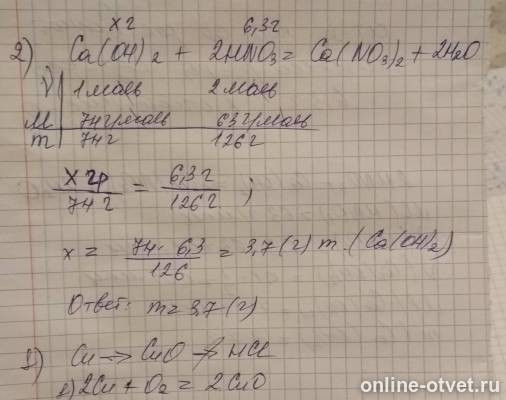 х г 6,3 г
2) Ca(OH)2 + 2HNO3 = Ca(NO3)2 + 2H2O
ν 1 моль 2 моль
M 74 г/моль 63 г/моль
m 74 г 126 г
х гр / 74 г = 6,3 г / 126 г ;
x = 74 · 6,3 / 126 = 3,7 (г) m (Ca(OH)2)
Ответ: m = 3,7 (г)
Cu → CuO → HCl
1) 2Cu + O2 = 2CuO
online-otvet.ru